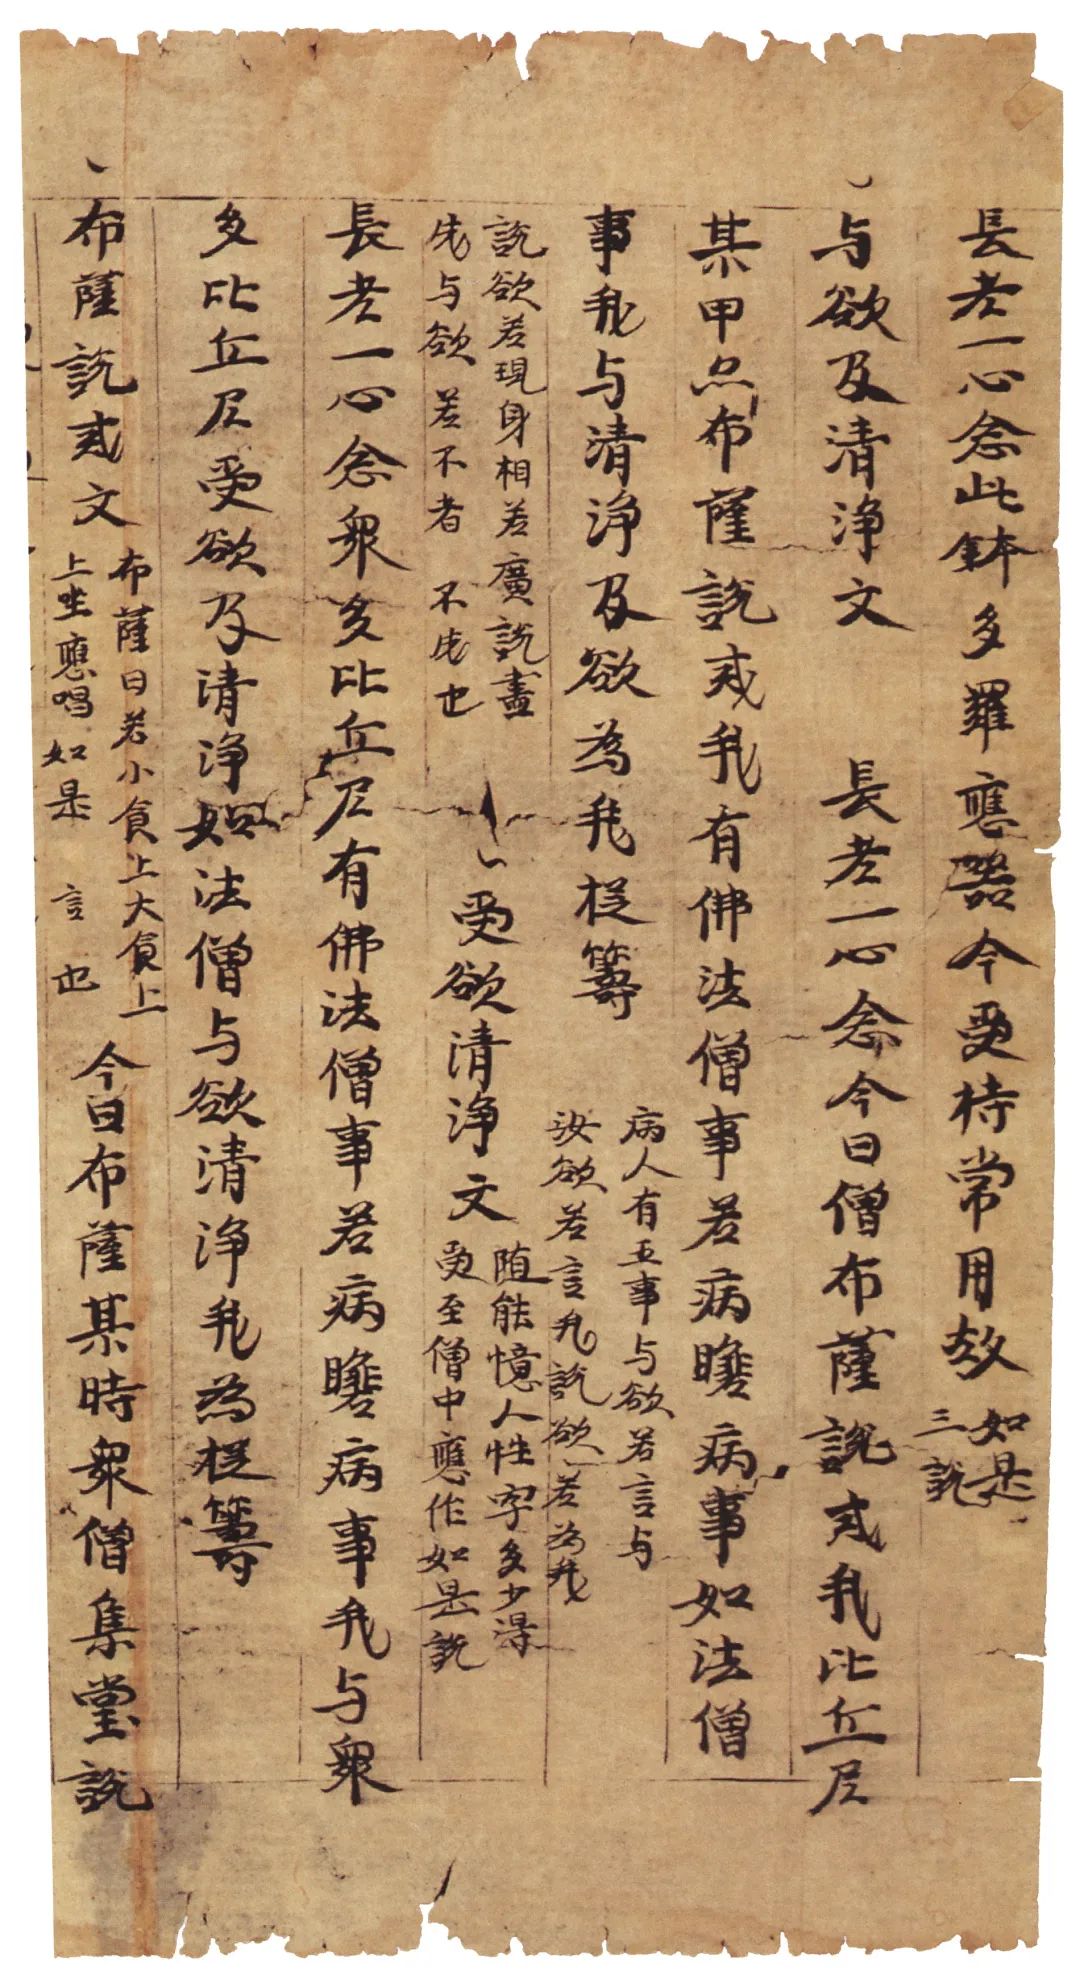 長老一心念此鉢多羅應器今受持常用故 如是
三說
与欲及清淨文 長老一心念今日僧布薩說戒我比丘尼
某甲亦布薩說戒我有佛法僧事若病瞻病事如法僧
事我与清淨及欲為我捉籌
病人有五事与欲若言与
汝欲若言我說欲若為我
說欲若現身相若廣說盡
成与欲若不者 不成也
受欲清淨文
随能憶人性字多少得
受至僧中應作如是說
長老一心念眾多比丘尼有佛法僧事若病瞻病事我与眾
多比丘尼受欲及清淨如法僧与欲清淨我為捉籌
布薩說戒文
布薩日若小食上大食上
上坐應唱如是 言也
今日布薩某時眾僧集堂說